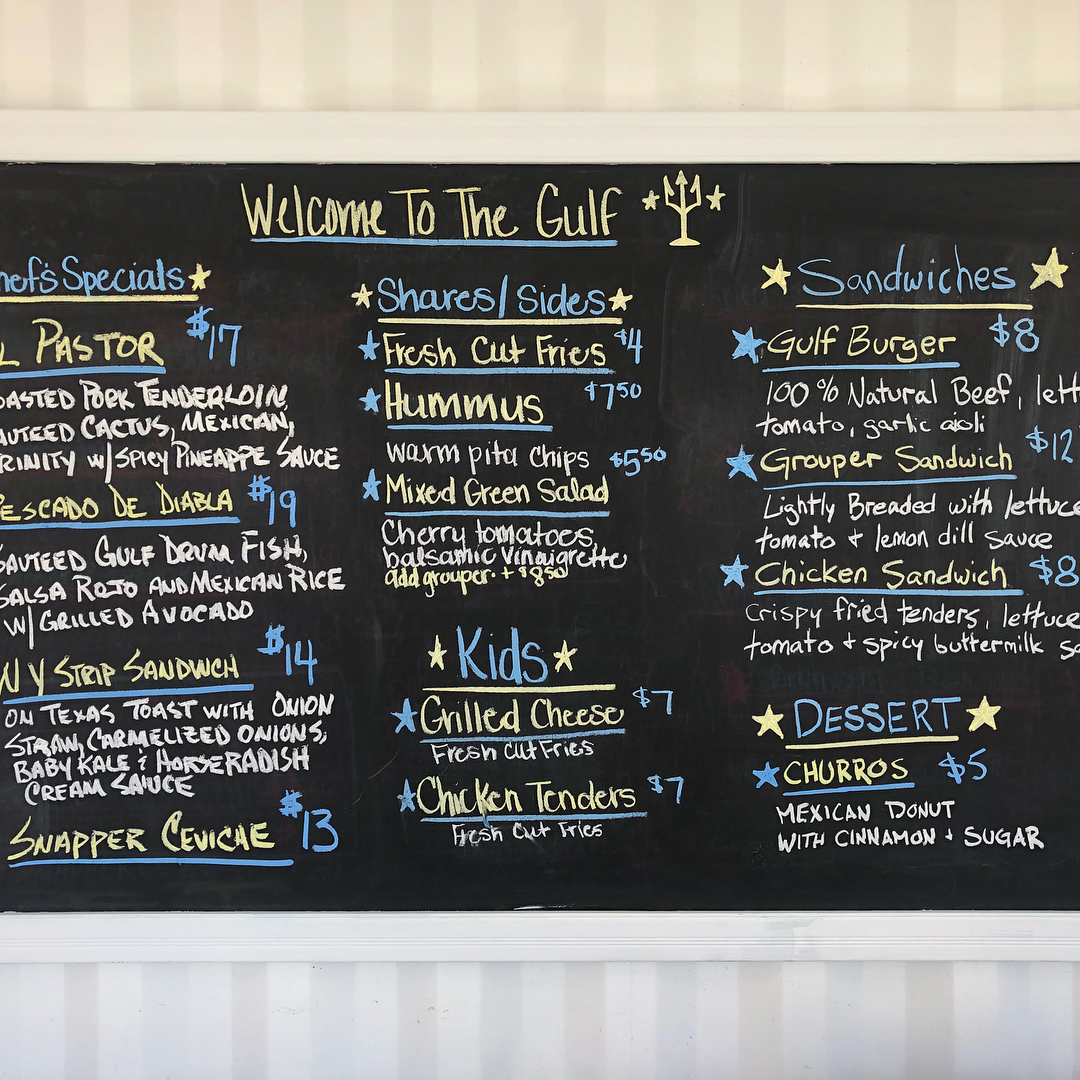 Welcome To The Gulf
hef's Specials
L PASTOR $17
OASTED PORK TENDERLOIN,
AUTEED CACTUS, MEXICAN,
RINITY W/ SPICY PINEAPPE SAUCE
PESCADO DE DIABLA $19
SAUTEED GULF DRUM FISH,
SALSA ROJO AND MEXICAN RICE
W/ GRILLED AVOCADO
N Y STRIP SANDWCH $14
ON TEXAS TOAST WITH ONION
STRAW, CARMELIZED ONIONS,
BABY KALE & HORSERADISH
CREAM SAUCE
SNAPPER CEVICHE $13
Shares/Sides
Fresh Cut Fries $4
Hummus $7.50
warm pita chips
Mixed Green Salad $5.50
Cherry tomatoes,
balsamic vinaigrette
add grouper + $8.50
Kids
Grilled Cheese $7
Fresh Cut Fries
Chicken Tenders $7
Fresh Cut Fries
Sandwiches
Gulf Burger $8
100% Natural Beef, lett
tomato, garlic aioli
Grouper Sandwich $12
Lightly Breaded with lettuce
tomato + lemon dill sauce
Chicken Sandwich $8
Crispy fried tenders, lettuce
tomato + spicy buttermilk sa
DESSERT
CHURROS $5
MEXICAN DONUT
WITH CINNAMON + SUGAR